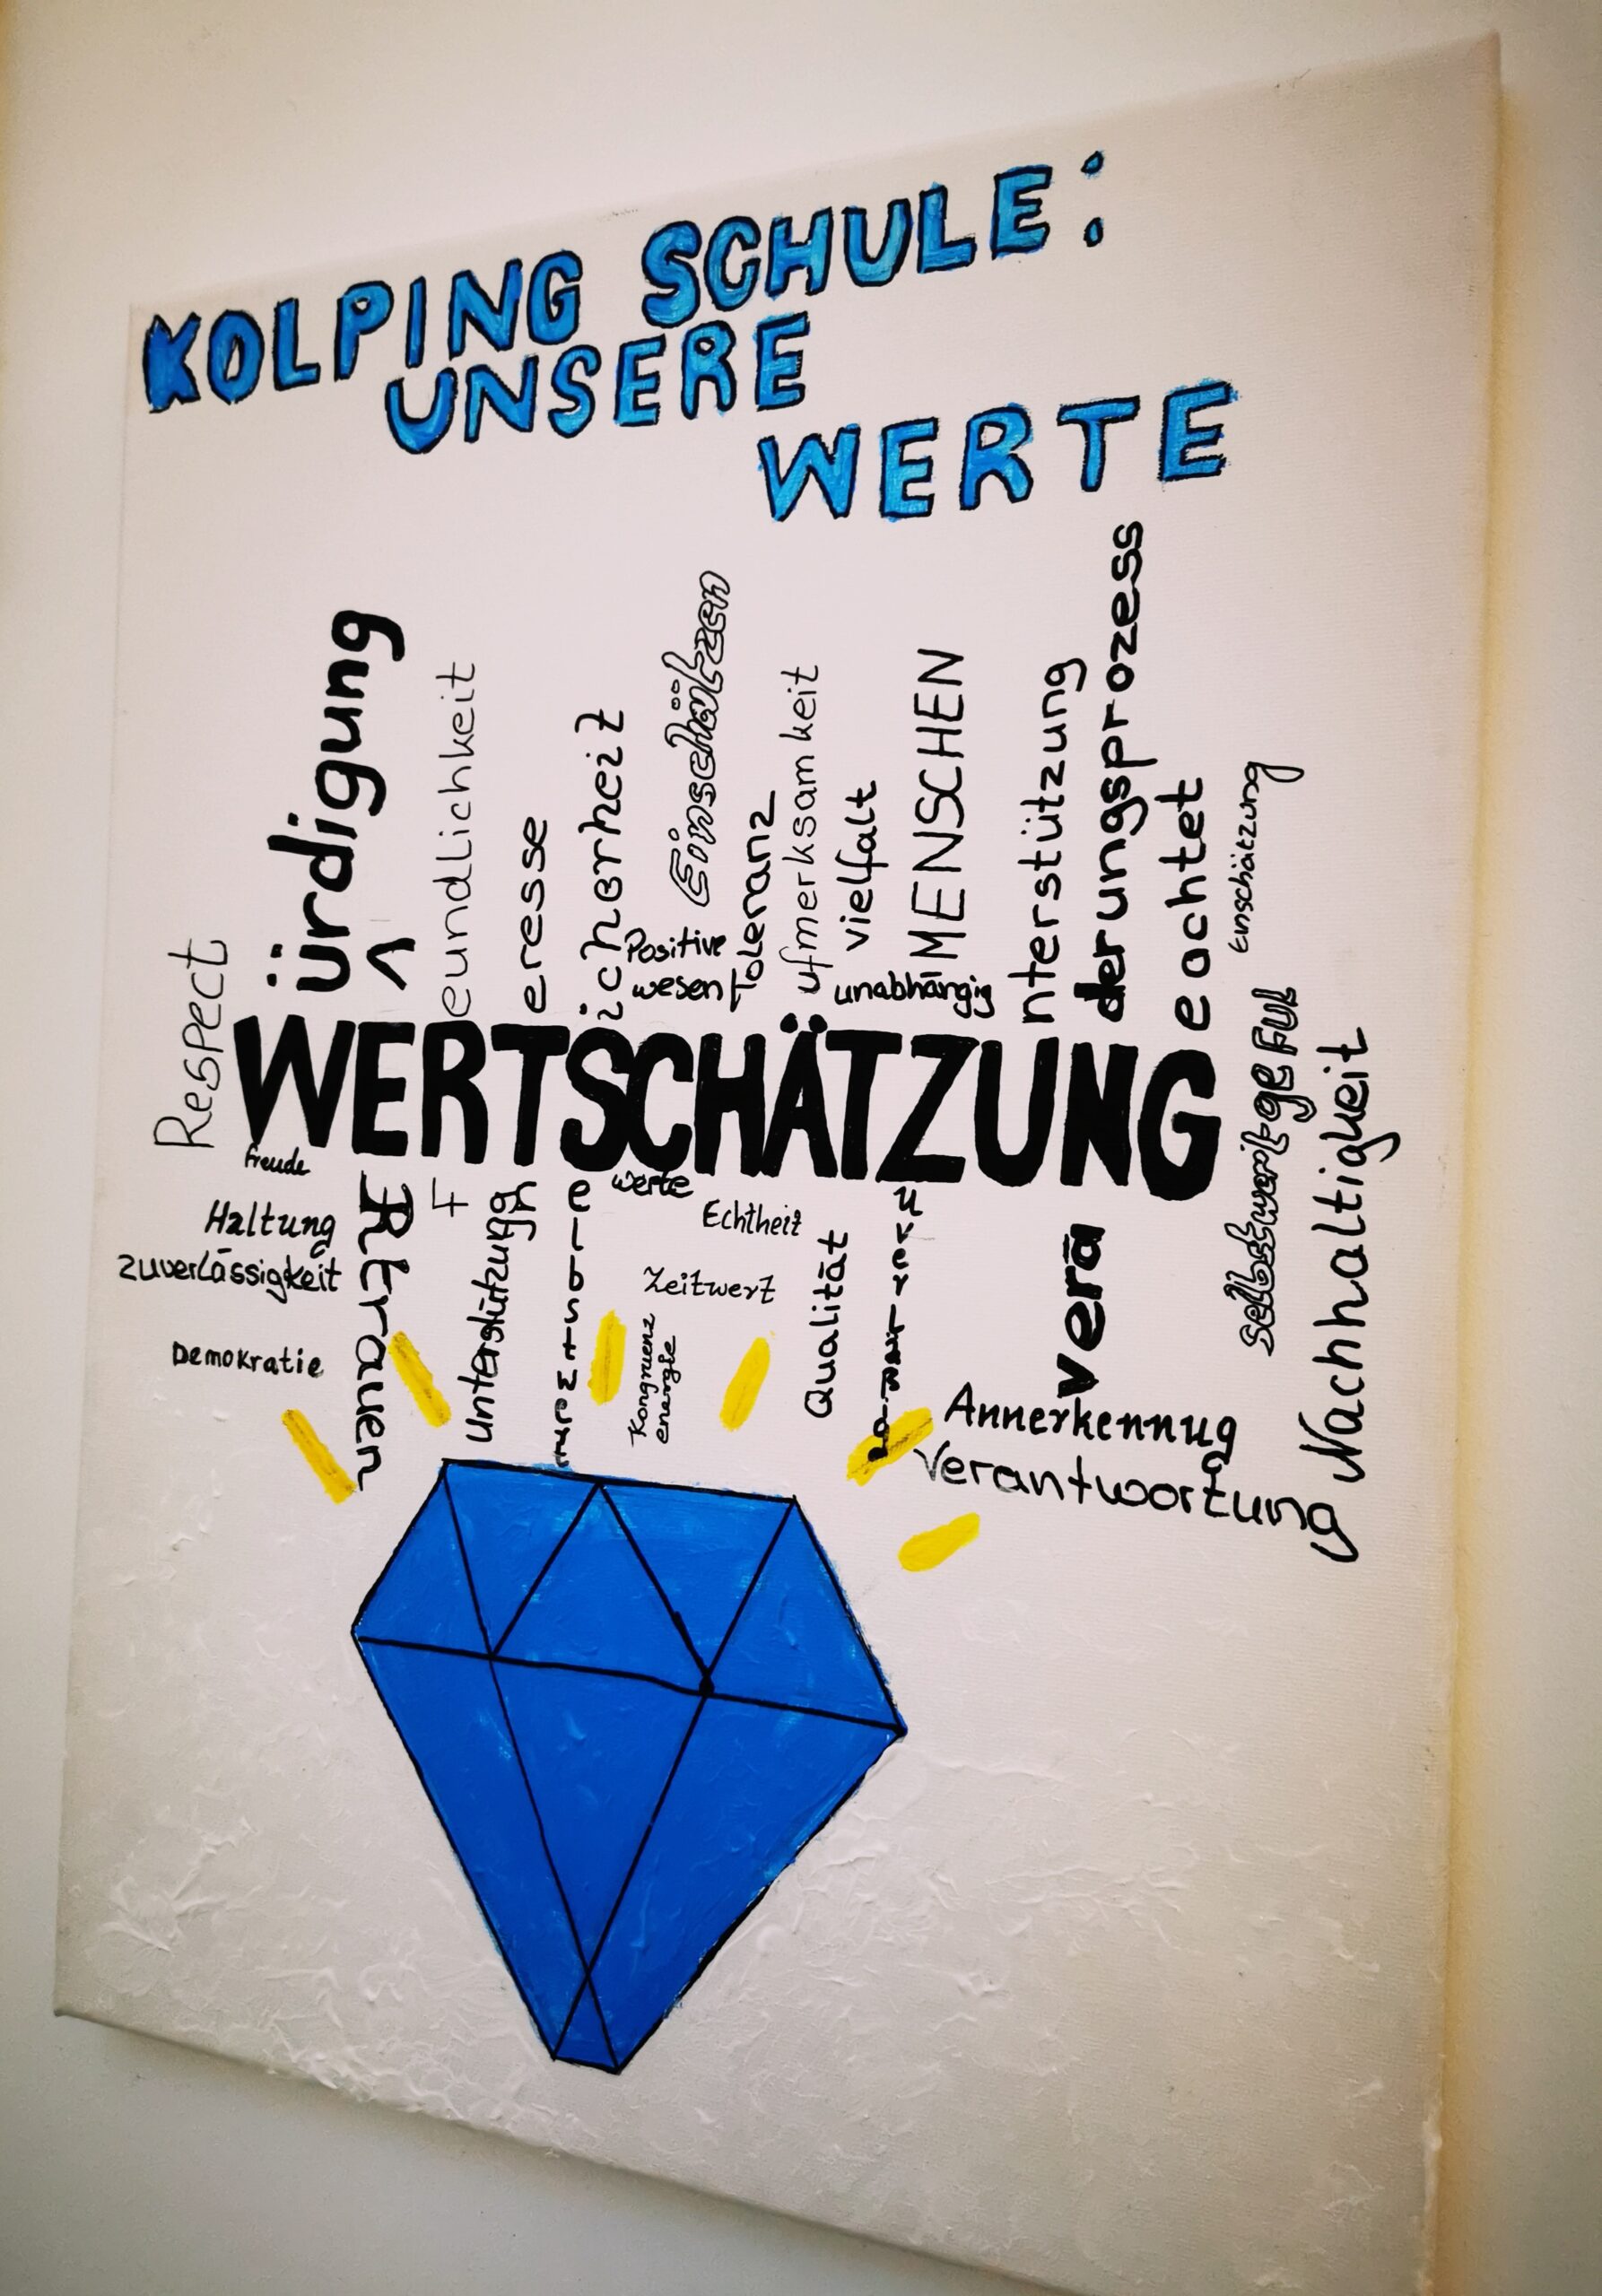 KOLPING SCHULE:
UNSERE
WERTE
Respect
ürdigung
eundlichkeit
eresse
icherheit
Positive
wesen
Einschätzen
Toleranz
ufmerksamkeit
vielfalt
unabhängig
MENSCHEN
nterstützung
derungsprozess
eachtet
Einschätzung
WERTSCHÄTZUNG
freude
Haltung
zuverlässigkeit
Demokratie
unterstützung
werte
Echtheit
Zeitwert
Kongruenz
energie
Qualität
verä
Annerkennug
Verantwortung
Nachhaltigkeit